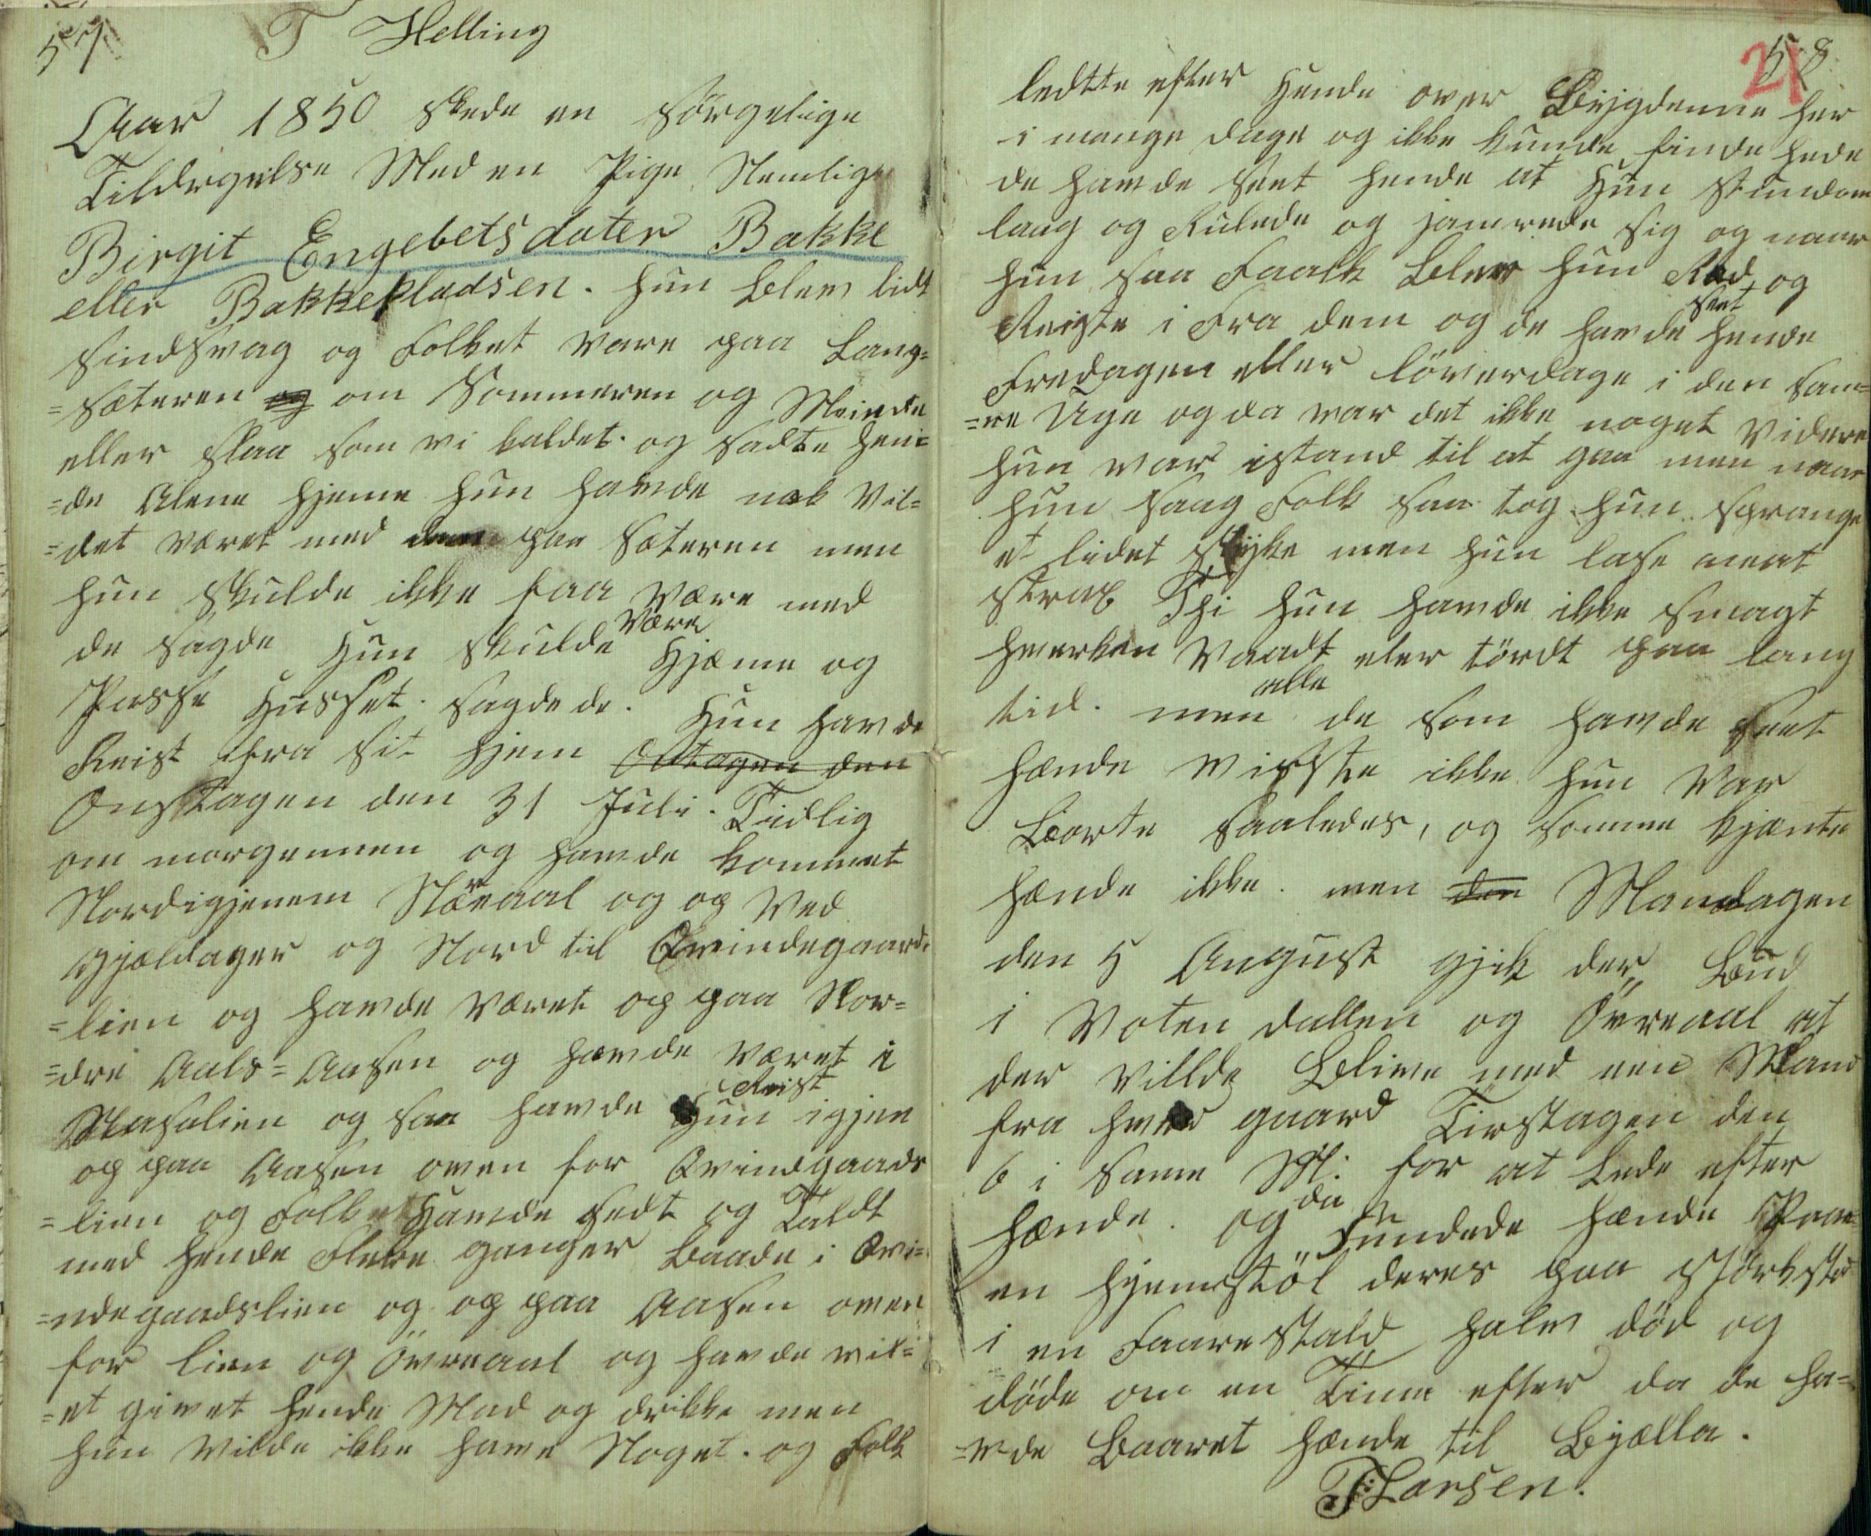 57
T Helling
Aar 1850 skede en sörgelige
Tildrgelse Med en Pige Nemlige
Birgit Engebetsdater Bakke
eller Bakkepladsen. hun blev lidt
sindsvag og Folket vare paa Lang=
=sæteren og om Sommeren og Meinde
eller slaa som vi kaldet. og sadte hen=
=de Alene hjeme hun havde nok vil=
=det været med dem paa Sæteren men
hun skulde ikke faa være med
de sagde Hun skulde være Hjæme og
Passe Husset. sagde de. Hun havde
Reist ifra sit hjem Ottagen den
Onstagen den 31 Juli. Tidlig
om morgennen og havde kommet
Nordigjenem Nöraal og op Ved
Gjældager og Nord til Qvindegaards
=lien og havde været op paa Nor=
=dre Aals=Aasen og havde været i
Masalien og saa havde Hun Reist igjen
op paa Aasen oven for Qvindgaads
=lien og Folke Havde Sedt og Taldt
med hende Flere ganger baade i Qvi=
=ndegaadslien og op paa Aasen oven
for lien og Övreaal og havde vil=
=et givet hende Mad og drikke men
hun vilde ikke have Noget. og Folk
58
21
ledtte efter Hende over Bygdenne her
i mange dage og ikke kunde finde hede
de havde seet hende at Hun stundom
laag og Kulede og jamrede sig og naar
hun saa Faalk blev hun Rad, og
Reiste i Fra dem og de havde seet hende
Fredagen eller löverdage i den sam=
=me Uge og da var det ikke noget videre
hun var istand til at gaa men naar
hun saag Folk saa tog hun sprange
et lidet styke men hun lase meat
strax Thi hun havde ikke smagt
hverken Vaadt eler tördt paa lang
tid. men alle de som havde seet
hænde viste ikke hun var
Borte saaledes, og somme kjænte
hænde ikke. men den Mandagen
den 5 August gjik der Bud
i Voten dallen og Övreaal at
der villde blive med een Mand
fra hver gaard Tirstagen den
6 i same M: for at Lede efter
hænde. og da Fundede hænde Paa
en hjemstöl deres paa
i en Faarestald halv död og
döde om en Time efter da de ha=
=vde Baaret hænde til Bjælla.
T. Larsen.